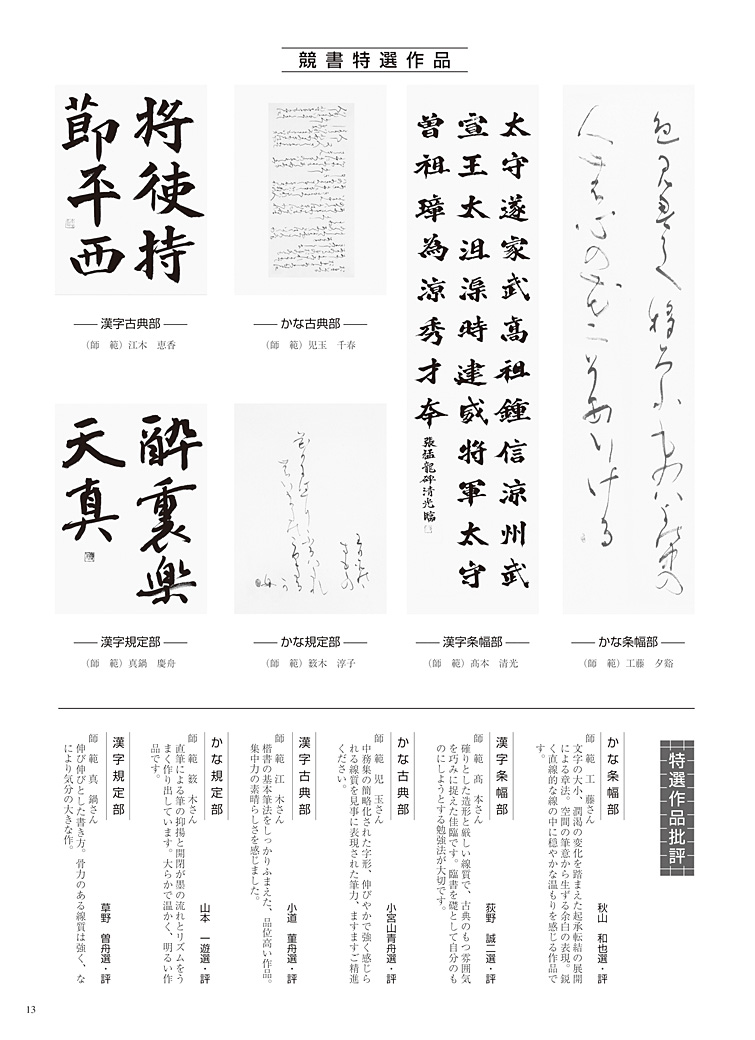 競書特選作品
色見えて
将使持
節平西
太守遂家武高祖鍾信涼州武
宣王太沮渠時建威将軍太守
曽祖璋為涼秀才本
張猛龍碑清光臨
漢字古典部
（師　範）江木　恵香
かな古典部
（師　範）児玉　千春
酔裏楽
天真
漢字規定部
（師　範）真鍋　慶舟
かな規定部
（師　範）籔木　淳子
漢字条幅部
（師　範）髙本　清光
かな条幅部
（師　範）工藤　夕谿
特選作品批評
かな条幅部
秋山　和也選・評
師　範　工　藤さん
文字の大小、潤渇の変化を踏まえた起承転結の展開
による章法。空間の筆意から生ずる余白の表現。鋭
く直線的な線の中に穏やかな温もりを感じる作品で
す。
漢字条幅部
荻野　誠二選・評
師　範　髙　本さん
確りとした造形と厳しい線質で、古典のもつ雰囲気
を巧みに捉えた佳臨です。臨書を礎として自分のも
のにしようとする勉強法が大切です。
かな古典部
小宮山青舟選・評
師　範　児　玉さん
中務集の簡略化された字形、伸びやかで強く感じら
れる線質を見事に表現された筆力、ますますご精進
ください。
漢字古典部
小道　菫舟選・評
師　範　江　木さん
楷書の基本筆法をしっかりふまえた、品位高い作品。
集中力の素晴らしさを感じました。
かな規定部
山本　一遊選・評
師　範　籔　木さん
直筆による筆の抑揚と開閉が墨の流れとリズムをう
まく作り出しています。大らかで温かく、明るい作
品です。
漢字規定部
草野　曽舟選・評
師　範　真　鍋さん
伸び伸びとした書き方。骨力のある線質は強く、な
により気分の大きな作。
13